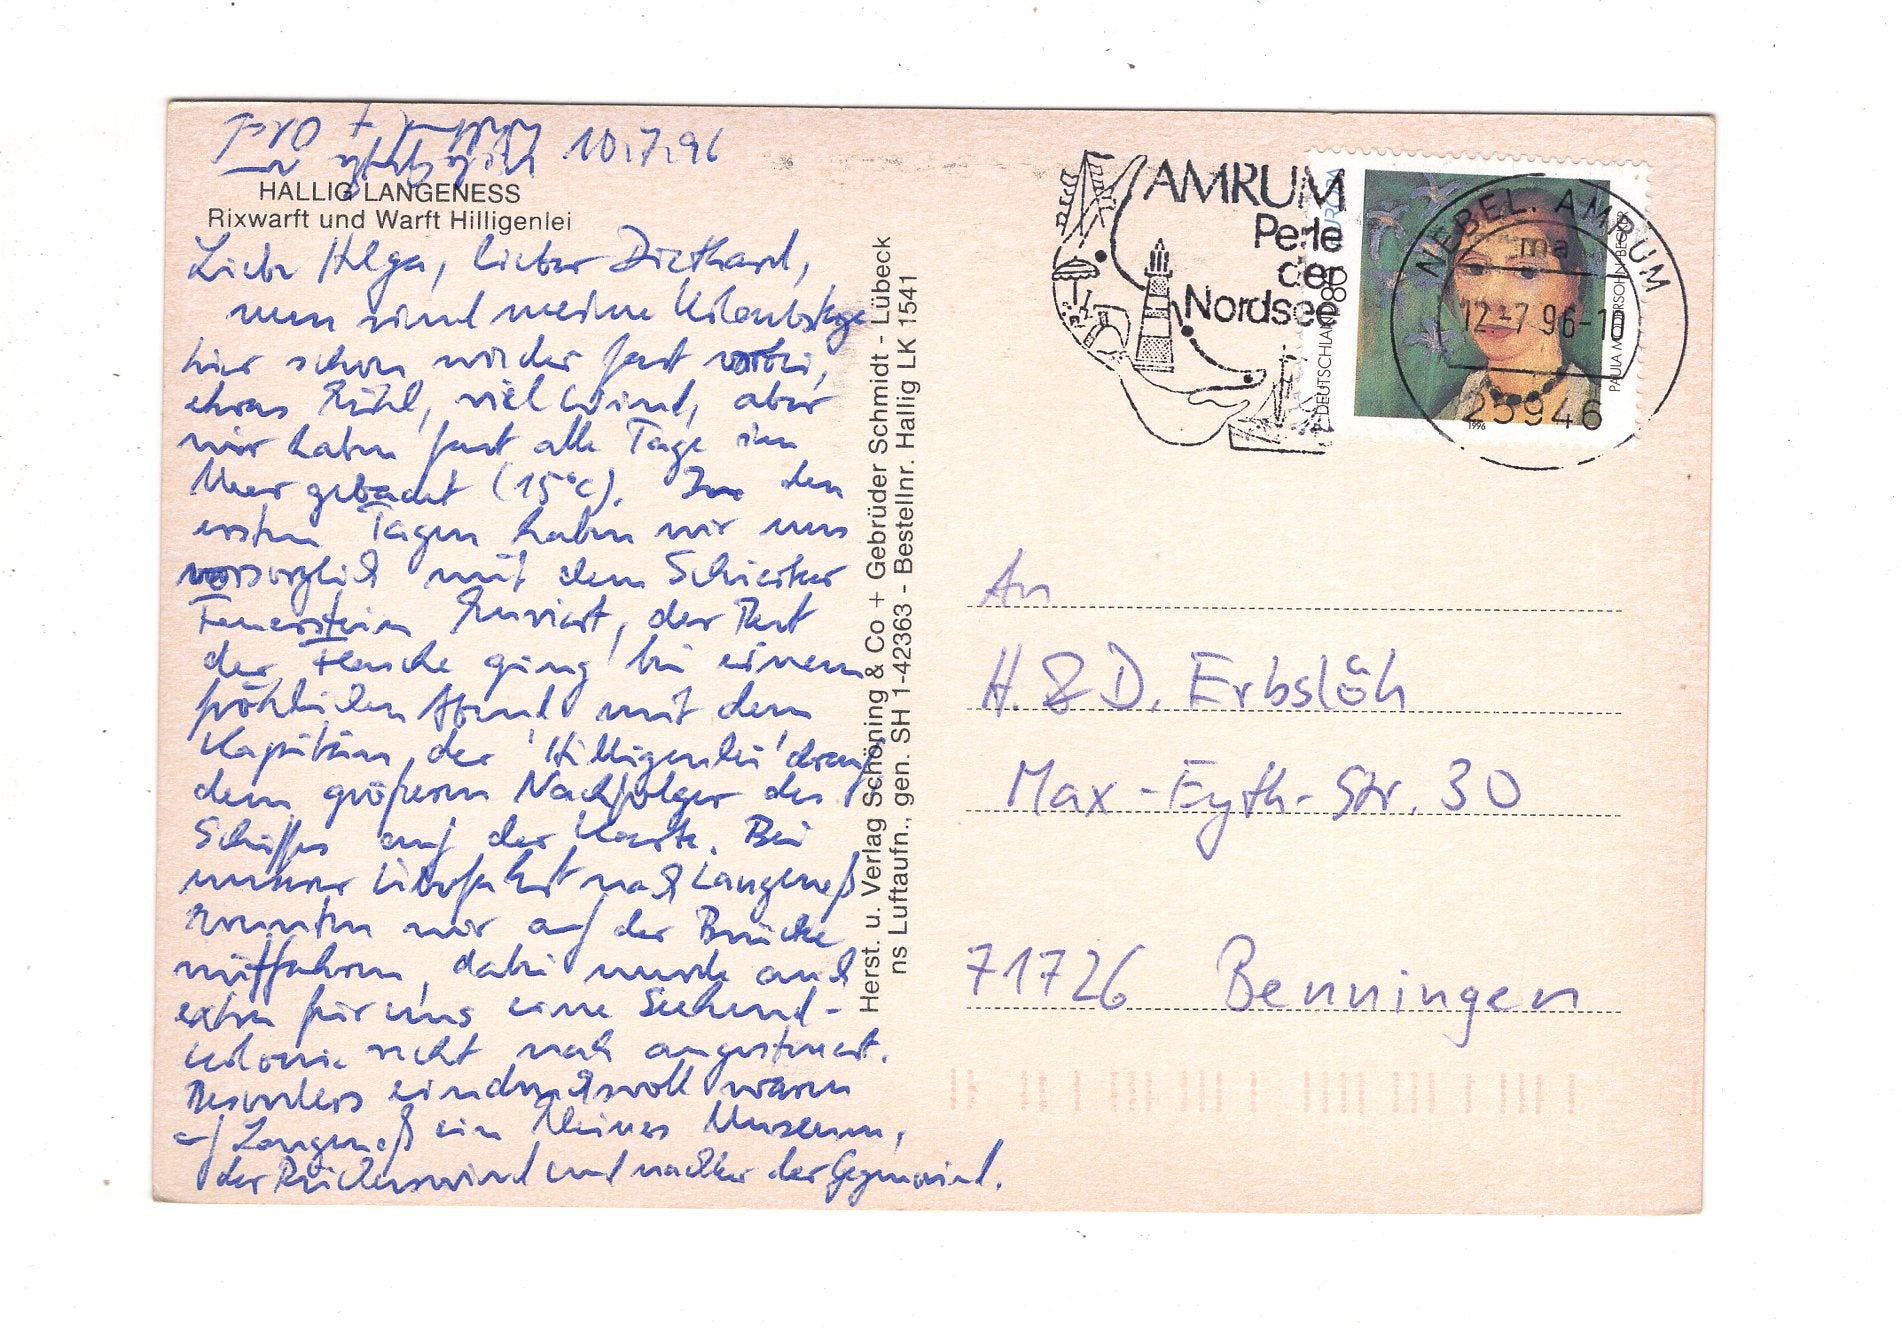 10.7.96
HALLIG LANGENESS
Rixwarft und Warft Hilligenlei
Liebe Helga, lieber Diethard,
nun sind meine Urlaubstage
hier schon wieder fast vorbei,
etwas kühl, viel Wind, aber
wir haben fast alle Tage im
Meer gebadet (15°C). In den
ersten Tagen haben wir uns
vorsorglich mit dem Schierker
Feuerstein kuriert, der Rest
der Flasche ging bei einem
fröhlichen Abend mit dem
Kapitän der 'Hilligenlei' drauf,
dem größeren Nachfolger des
Schiffes auf der Karte. Bei
unserer Überfahrt nach Langeneß
konnten wir auf der Brücke
mitfahren, dabei wurde auch
extra für uns eine Seehund-
kolonie recht nah angesteuert.
Besonders eindrucksvoll waren
auf Langeneß ein kleines Museum,
der Rückenwind und nachher der Gegenwind.
Herst. u. Verlag Schöning & Co + Gebrüder Schmidt - Lübeck
ns Luftaufn., gen. SH 1-42363 - Bestellnr. Hallig LK 1541
AMRUM
Perle
der
Nordsee
DEUTSCHLAND 80
EUROPA
PAULA MODERSOHN-BECKER
1996
NEBEL, AMRUM
ma
12.-7.96-10
25946
An
H. & D. Erbslöh
Max-Eyth-Str. 30
71726 Benningen